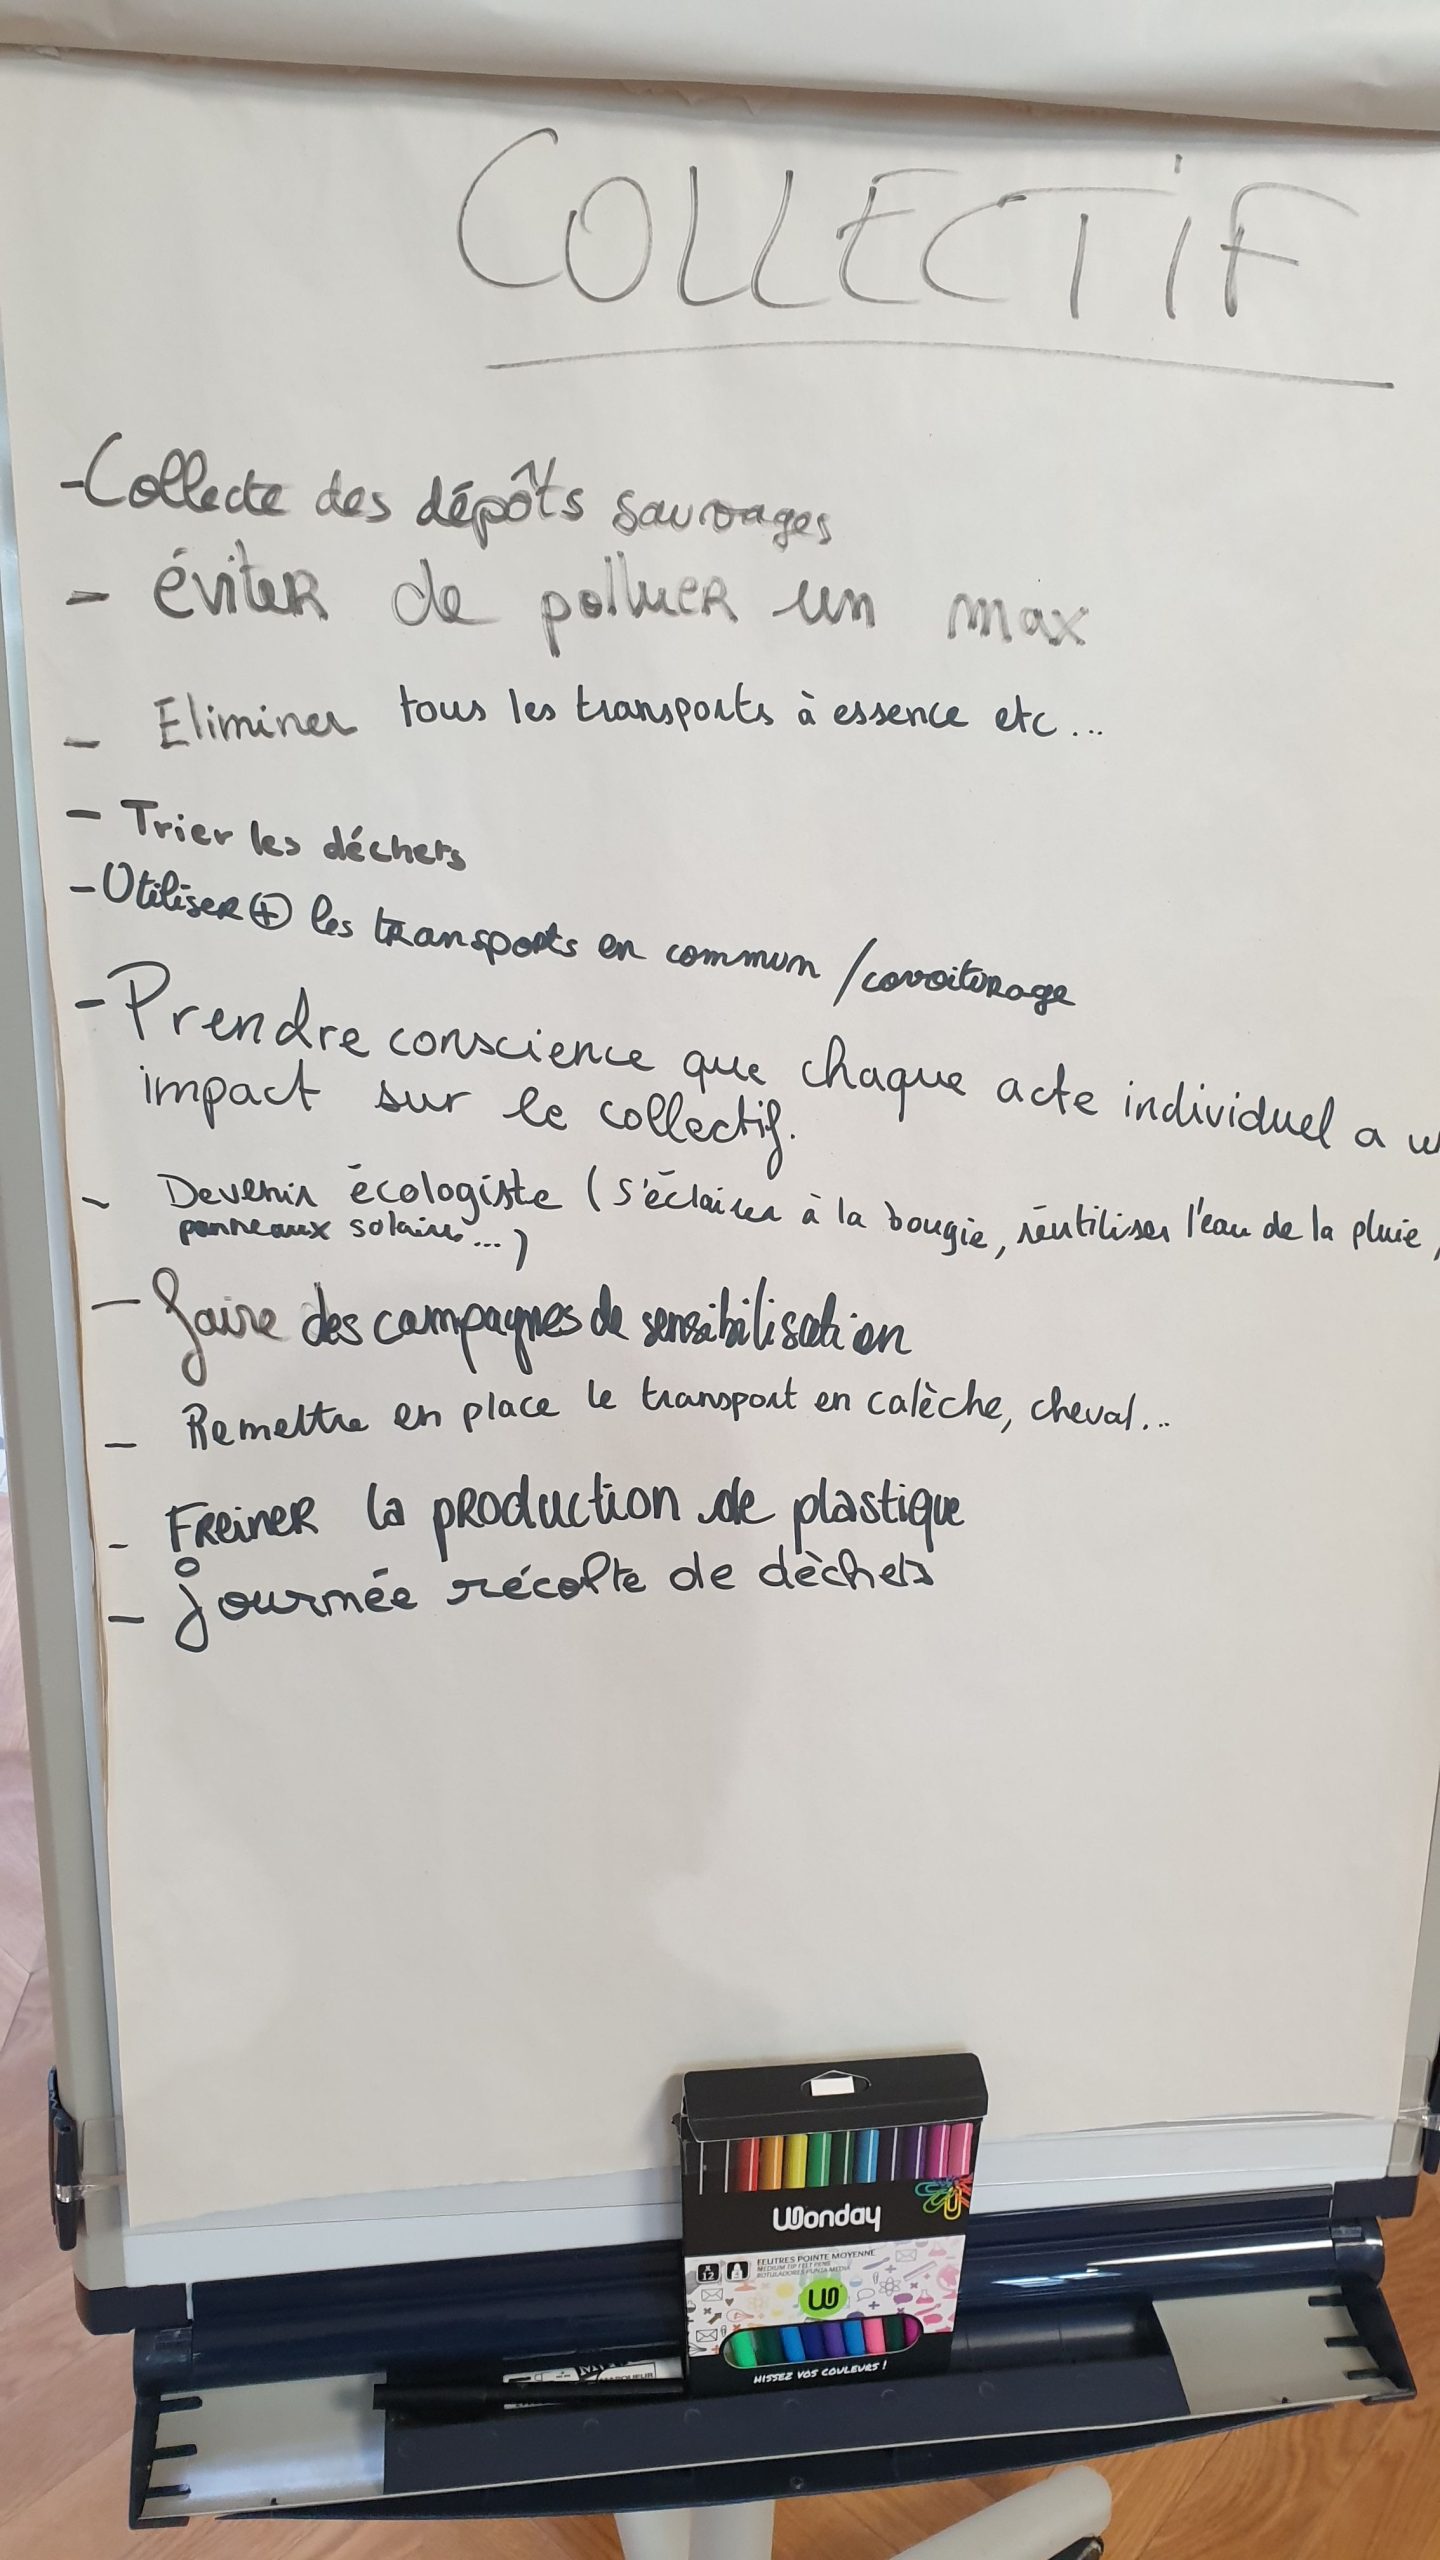 COLLECTIF
-Collecte des dépôts sauvages
- éviter de polluer un max
- Eliminer tous les transports à essence etc...
- Trier les déchets
- Utiliser ⊕ les transports en commun / covoiturage
- Prendre conscience que chaque acte individuel a u
impact sur le collectif.
- Devenir écologiste (s'éclairer à la bougie, réutiliser l'eau de la pluie,
panneaux solaires...)
- faire des campagnes de sensibilisation
- Remettre en place le transport en calèche, cheval...
- Freiner la production de plastique
- journée récolte de dèchets
Wonday
x12
FEUTRES POINTE MOYENNE
MEDIUM TIP FELT PENS
ROTULADORES PUNTA MEDIA
W
HISSEZ VOS COULEURS !